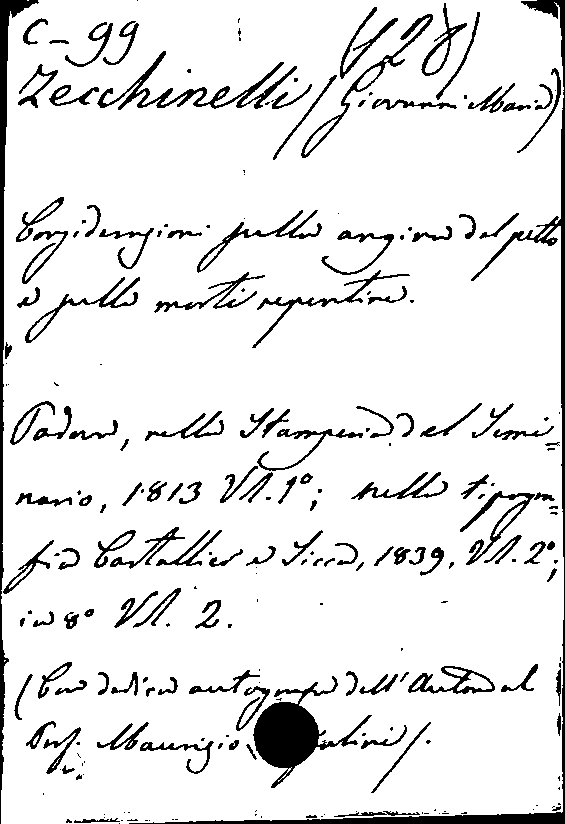 C-99 (128)
Zecchinelli (Giovanni Maria)
Considerazioni sulla angina del petto
e sulle morti repentine.
Padova, nella Stamperia del Semi=
nario, 1813 Vol. 1º; nella tipogra=
fia Cartallier e Sicca, 1839. Vol. 2º;
in 8º Vol. 2.
(Con dedica autografa dell'Autore al
Prof. Maurizio